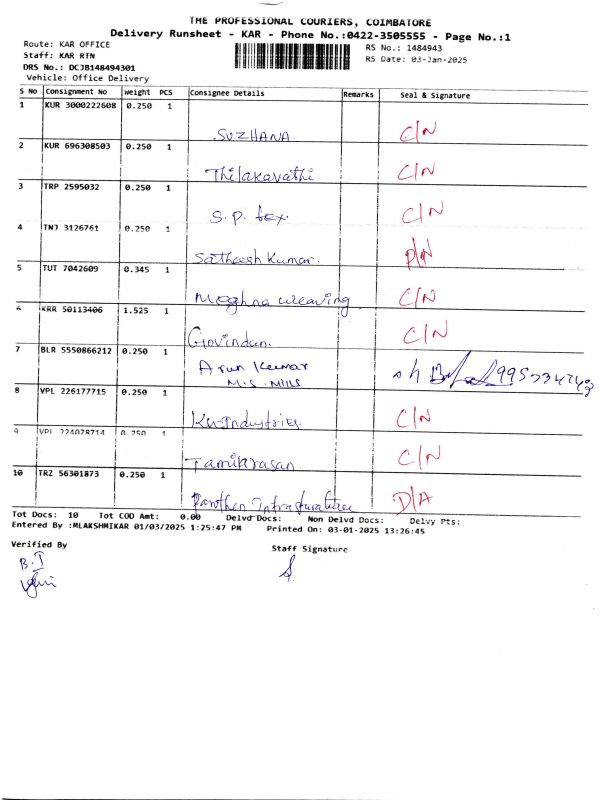 THE PROFESSIONAL COURIERS, COIMBATORE
Delivery Runsheet - KAR - Phone No.:0422-3505555 - Page No.:1
Route: KAR OFFICE
RS No.: 1484943
Staff: KAR RTN
RS Date: 03-Jan-2025
DRS No.: DCJB148494301
Vehicle: Office Delivery
S No Consignment No Weight PCS Consignee Details Remarks Seal & Signature
1 KUR 3000222608 0.250 1 SUZHANA C/N
2 KUR 696308503 0.250 1 Thilakavathi C/N
3 TRP 2595032 0.250 1 S.P. tex. C/N
4 TNJ 3126761 0.250 1 Satheesh Kumar. D/N
5 TUT 7042609 0.345 1 Meghna weaving C/N
6 KRR 50113406 1.525 1 Govindan. C/N
7 BLR 5550866212 0.250 1 Arun Kumar
M.S. Mills
8 VPL 226177715 0.250 1 Industries. C/N
9 VPL 224078714 0.250 1 Tamilarasan C/N
10 TRZ 56301873 0.250 1 D/A
Tot Docs: 10 Tot COD Amt: 0.00 Delvd Docs: Non Delvd Docs: Delvy Pts:
Entered By :MLAKSHMIKAR 01/03/2025 1:25:47 PM Printed On: 03-01-2025 13:26:45
Verified By
Staff Signature